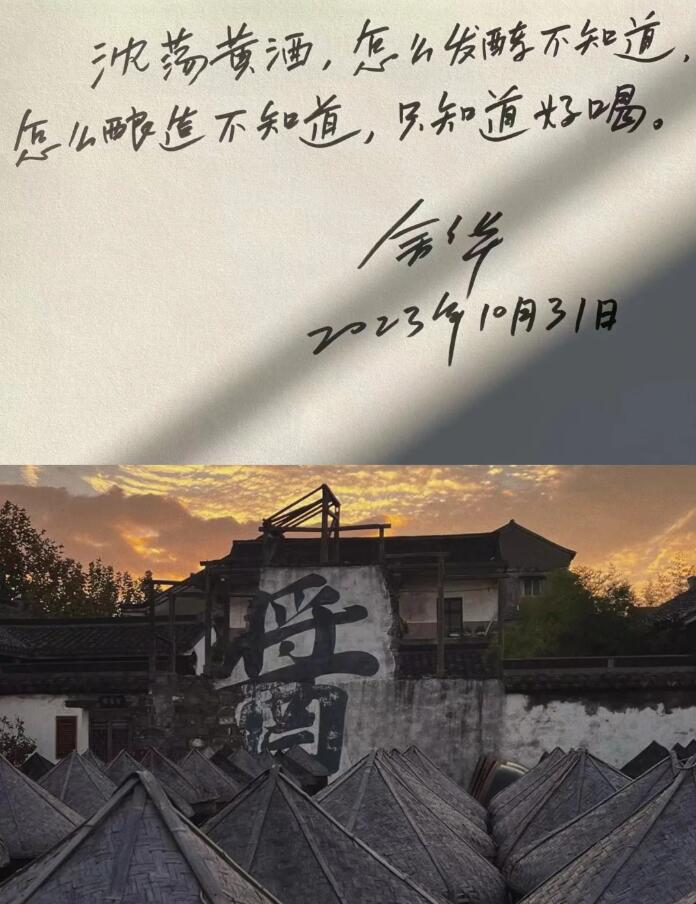 沈荡黄酒，怎么发酵不知道，
怎么酿造不知道，只知道好喝。
余华
2023年10月31日
酱